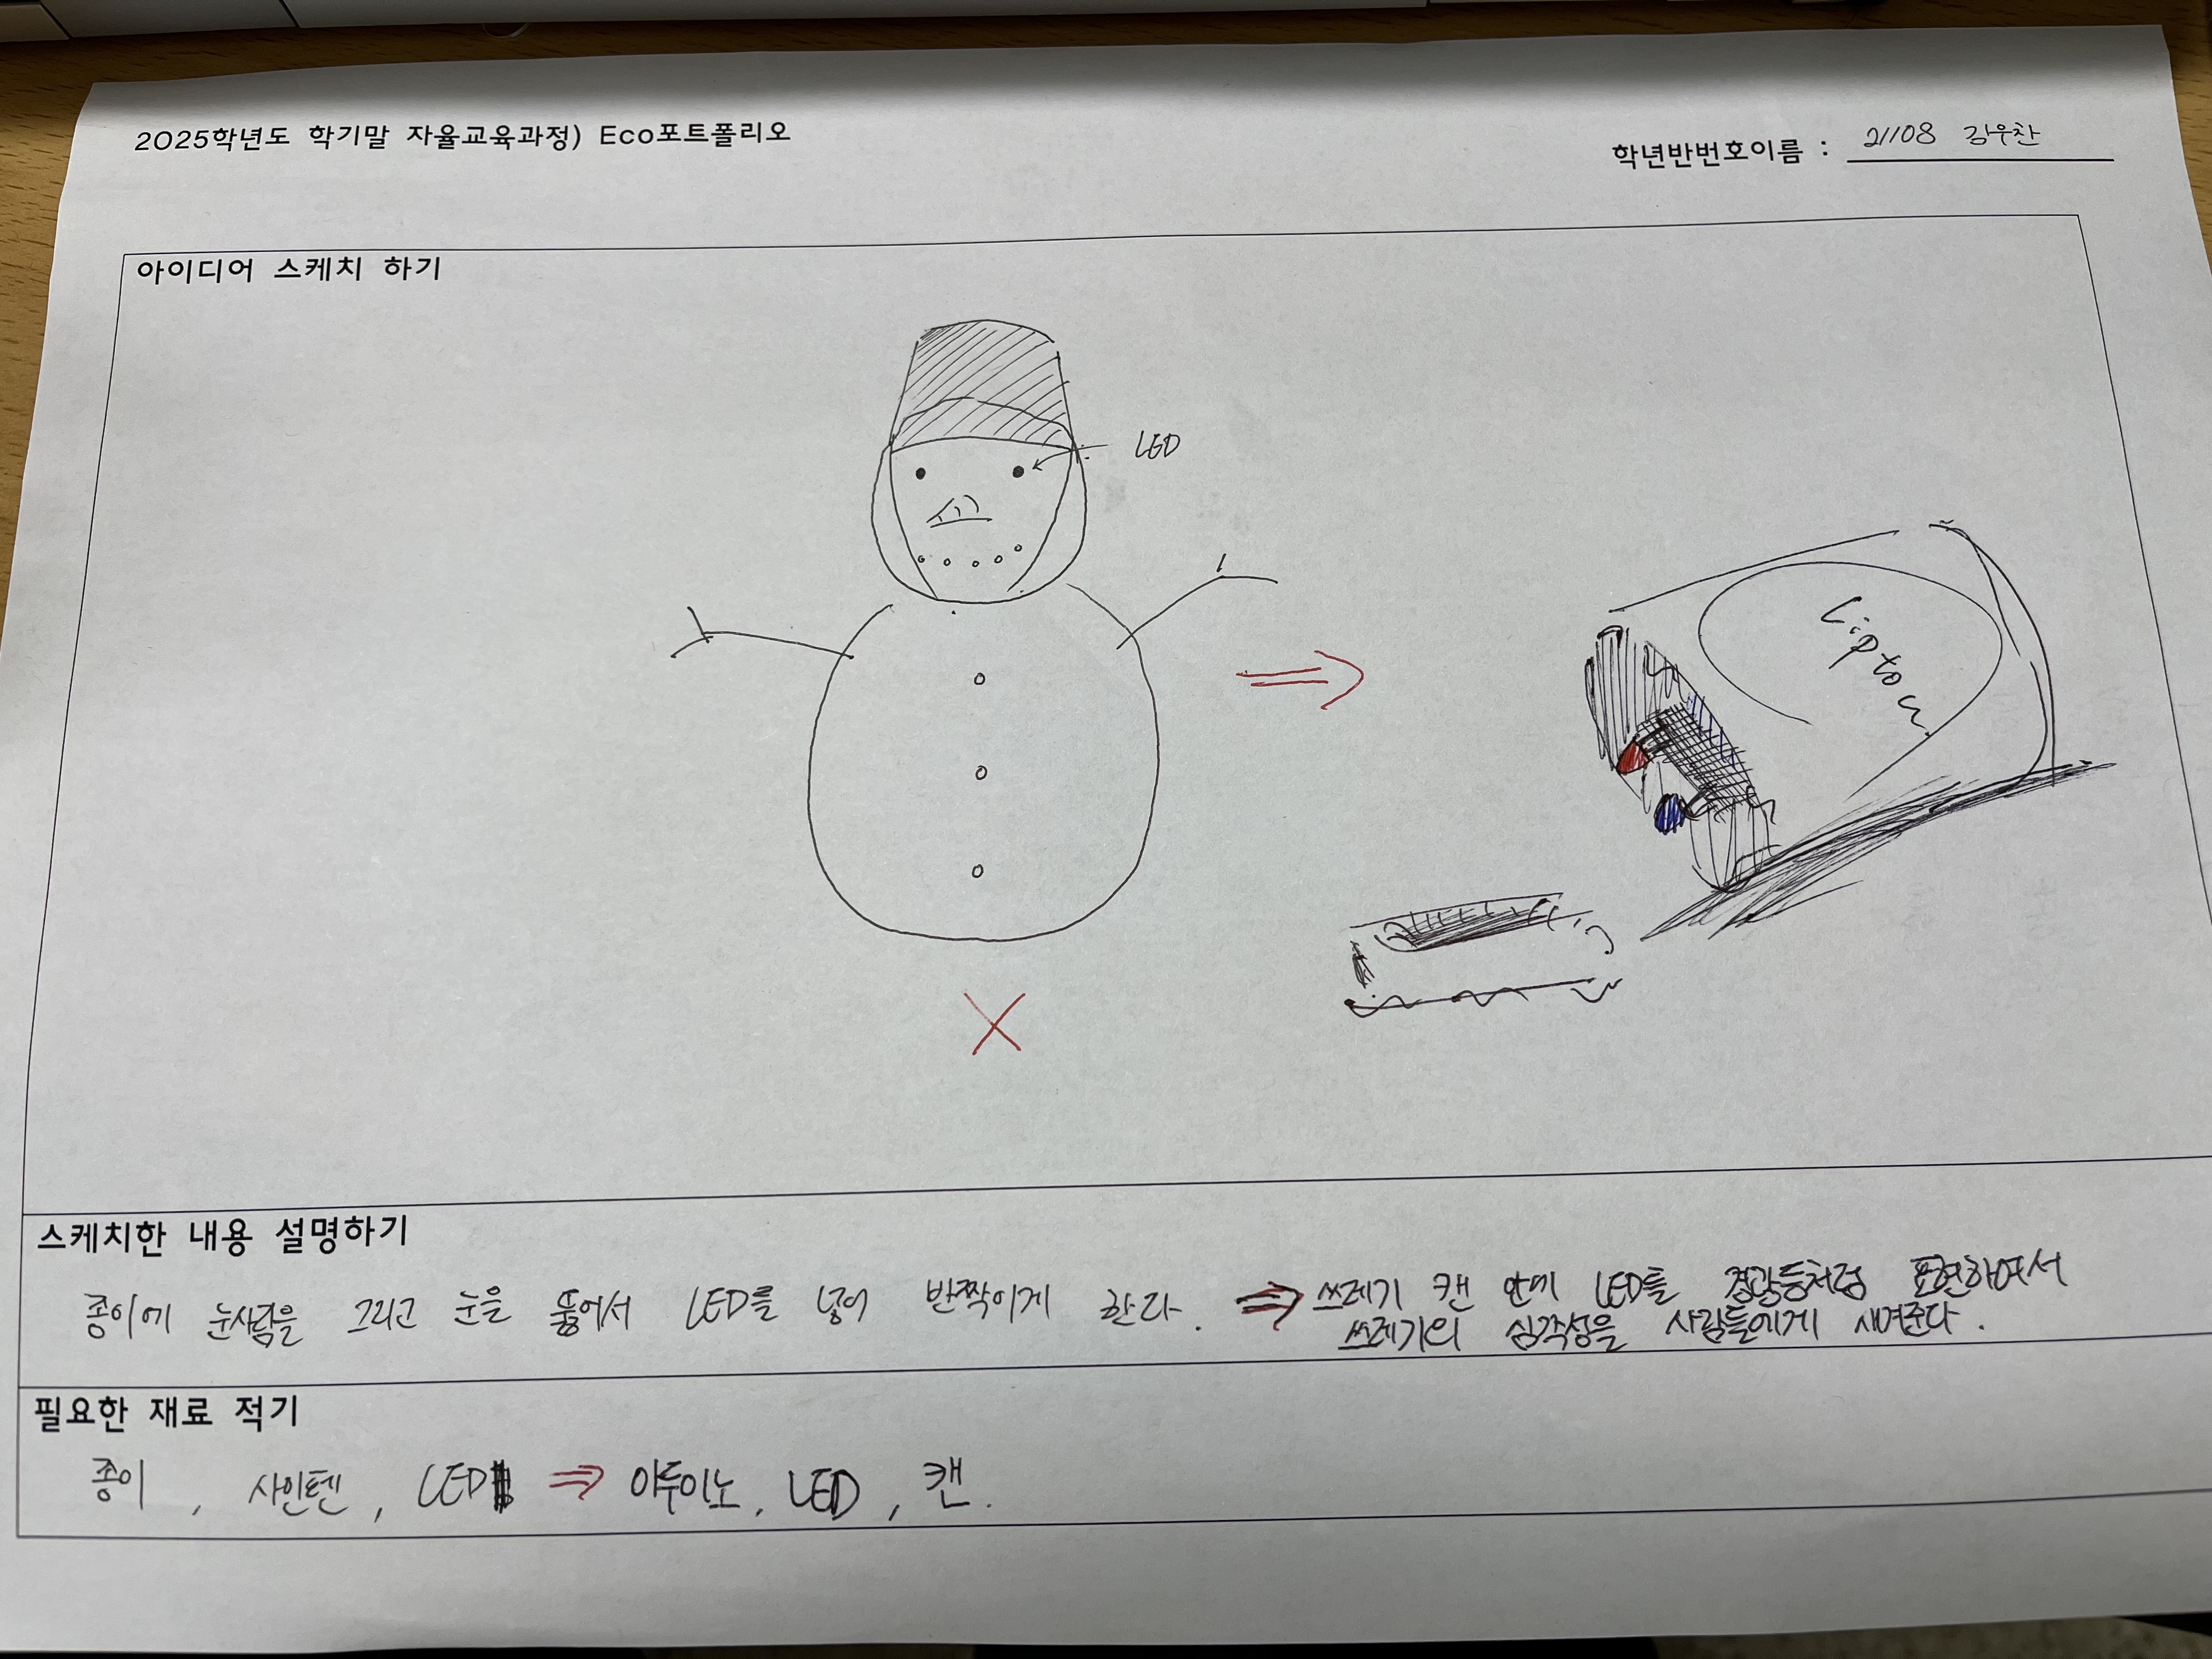 2025학년도 학기말 자율교육과정) Eco포트폴리오
학년반번호이름 : 21108 김우찬
아이디어 스케치 하기
LED
스케치한 내용 설명하기
종이에 눈사람을 그리고 눈을 뚫어서 LED를 넣어 반짝이게 한다. ⇒ 쓰레기 캔 안에 LED를 경광등처럼 표현하면서
쓰레기의 심각성을 사람들에게 새겨준다.
필요한 재료 적기
종이, 사인펜, LED ⇒ 아두이노, LED, 캔.